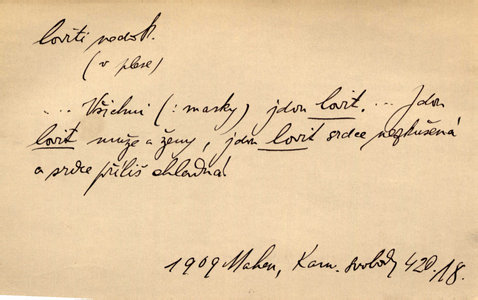 loviti nedok.
(v plese)
... Všichni (: masky) jdou lovit. ... Jdou
lovit muže a ženy, jdou lovit srdce nezkušená
a srdce příliš chladná
1909 Mahen, Kam. svobody 420.18.